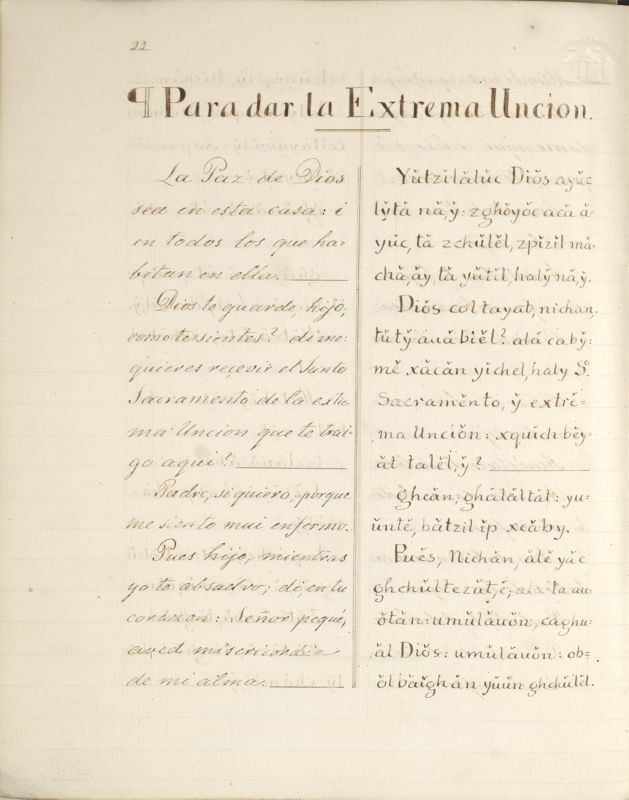 22
¶ Para dar la Extrema Uncion.
La Paz de Dios
sea en esta casa: i
en todos los que ha=
bitan en ella.
Dios te guarde, hijo;
como te sientes? dime=
quieres reçevir el Santo
Sacramento de la extre
ma Uncion que te trai=
go aqui?
Padre, si quiero, porque
me siento mui enfermo.
Pues hijo, mientras
yo te absuelvo, di en tu
corazon: Señor pequé,
aved misericordia
de mi alma.
Yŭtzilăluc Diŏs ayŭc
lỹtă nă,ỹ: zghŏyŏc acă ă=
yŭc, tă zchŭlĕl, zpĭzĭl mă=
chă,ăy, tă yŭtĭl, halỹ nă,ỹ.
Diŏs coltayat, nichan,
tŭtỹ ăuăbiĕl? ală cabỹ=
mĕ xăcăn yichel, haly So.
Sacramĕnto, ỹ extrĕ=
ma Unciŏn: xquĭch bĕy=
ăt talĕl,ỹ?
ghcăn, ghălăltăt: yu=
ŭntĕ, bătzil ĭp xcăby.
Puĕs, Nichăn, ătĕ yăc
ghchŭltezăt,ĕ, ala ta au
ŏtăn: umŭlăuŏn, caghu=
ăl Diŏs: umŭlăuŏn: ob=
ŏl băĭghăn yŭŭn ghchŭlĕl.